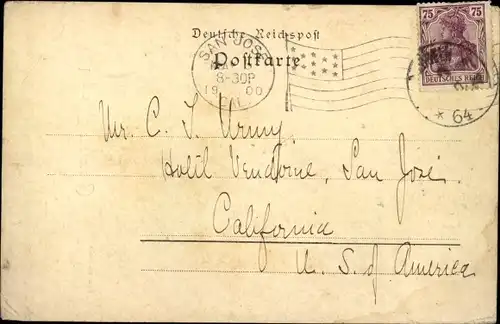 Deutsche Reichspost
Postkarte
SAN JOSE
8-30P
19 00
CAL.
75 75
DEUTSCHES REICH
* 64
Mr. C. T. Urmy,
Hotel Vendome, San José
California
U. S. of America